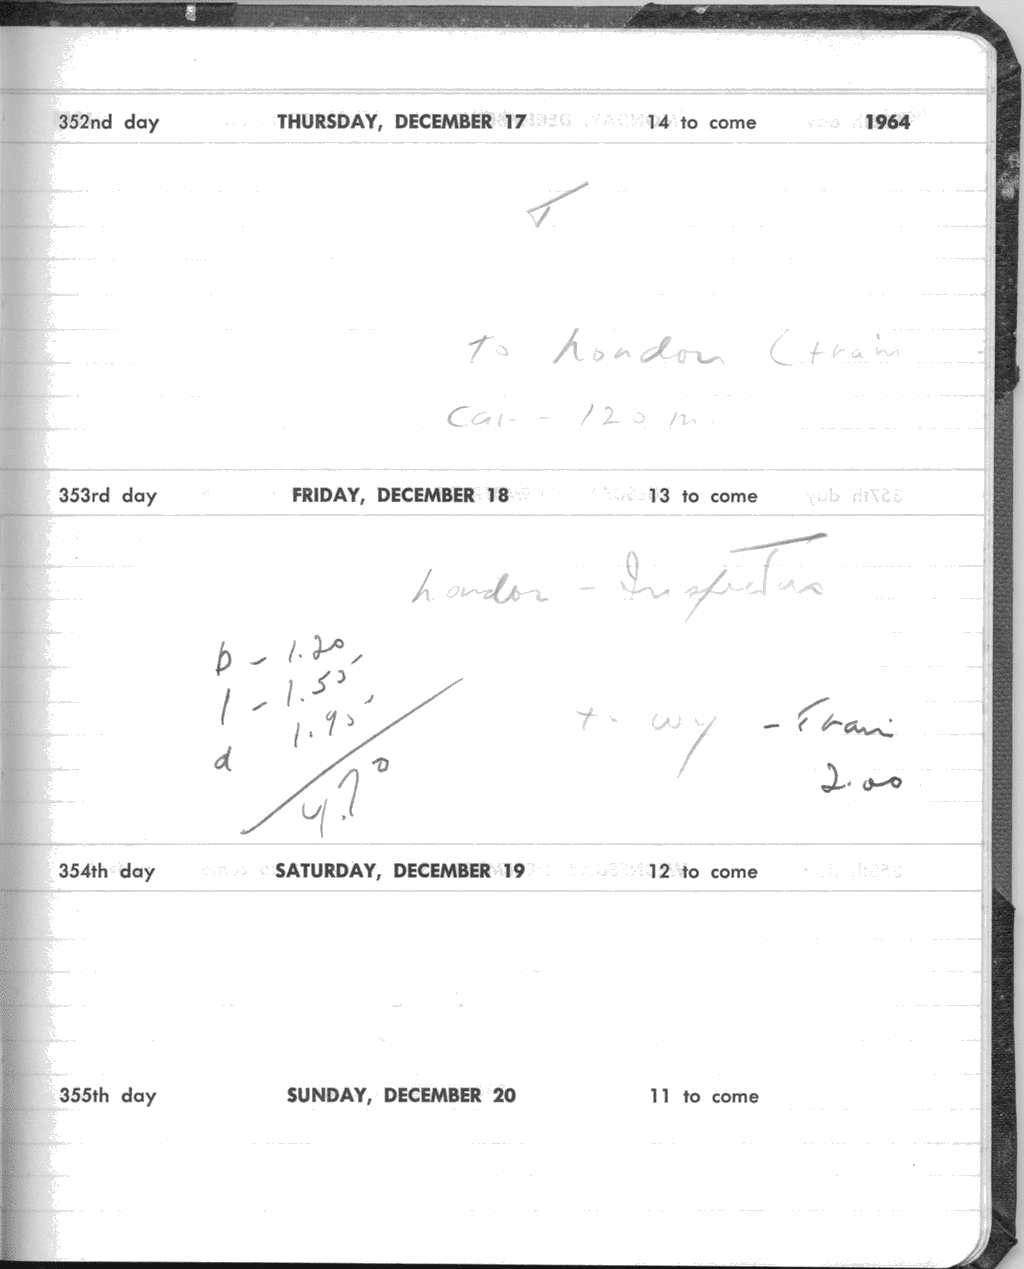 352nd day THURSDAY, DECEMBER 17 14 to come 1964
T
to London (train
Car - 120 m
353rd day FRIDAY, DECEMBER 18 13 to come
London - Inspection
b - 1.20
l - 1.55
d 1.95
4.70
to Wy - Train
2.00
354th day SATURDAY, DECEMBER 19 12 to come
355th day SUNDAY, DECEMBER 20 11 to come